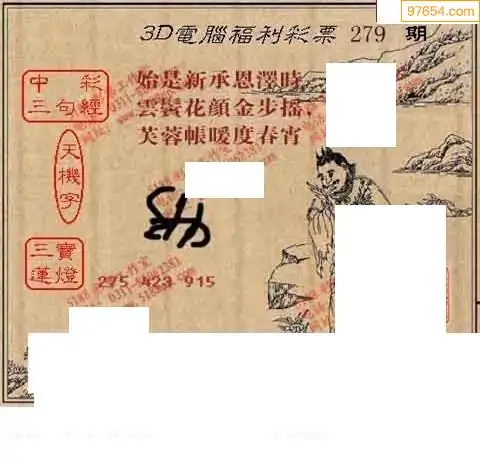 97654.com
3D電腦福利彩票 279 期
中彩
三句經
始是新承恩澤時
雲鬓花顔金步摇、
芙蓉帳暖度春宵
天機字
三寶
蓮燈
275 423 915